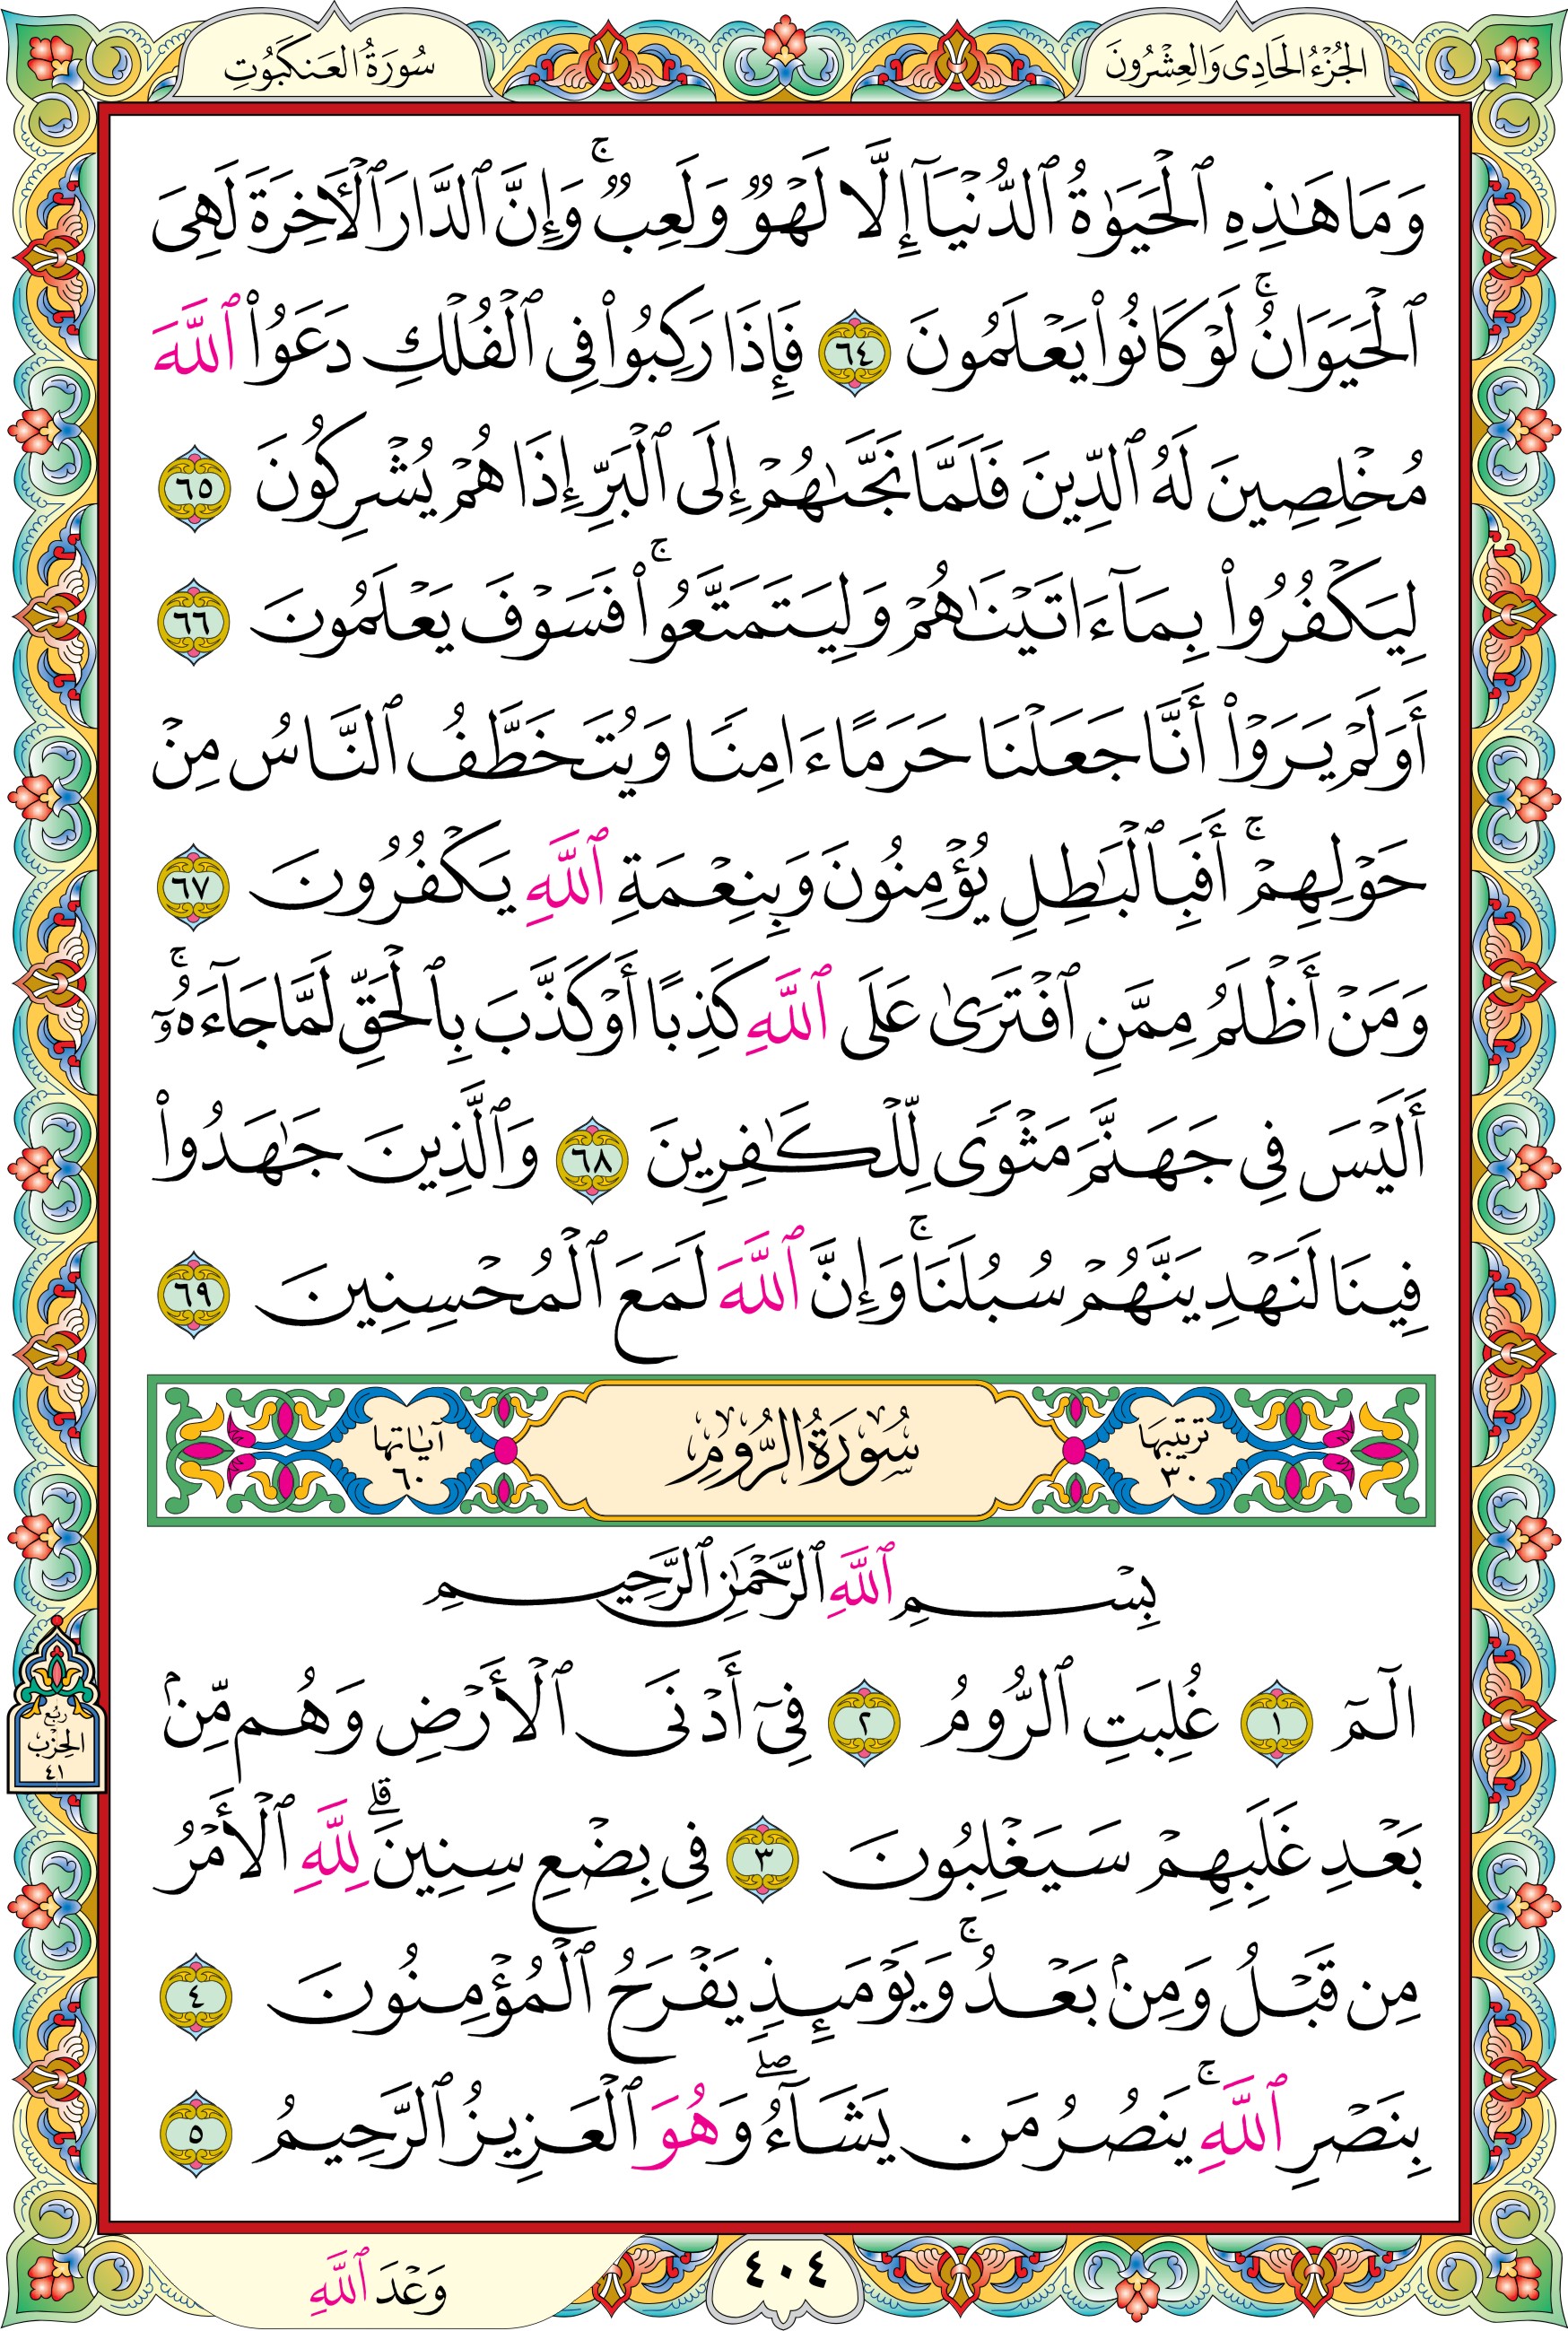 الجُزْءُ الحَادِى وَالعِشْرُونَ
سُورَةُ العَنكَبُوتِ
وَمَا هَٰذِهِ ٱلْحَيَوٰةُ ٱلدُّنْيَآ إِلَّا لَهْوٌ وَلَعِبٌ ۚ وَإِنَّ ٱلدَّارَ ٱلْأَخِرَةَ لَهِىَ
ٱلْحَيَوَانُ ۚ لَوْ كَانُوا۟ يَعْلَمُونَ ٦٤ فَإِذَا رَكِبُوا۟ فِى ٱلْفُلْكِ دَعَوُا۟ ٱللَّهَ
مُخْلِصِينَ لَهُ ٱلدِّينَ فَلَمَّا نَجَّىٰهُمْ إِلَى ٱلْبَرِّ إِذَا هُمْ يُشْرِكُونَ ٦٥
لِيَكْفُرُوا۟ بِمَآ ءَاتَيْنَٰهُمْ وَلِيَتَمَتَّعُوا۟ ۚ فَسَوْفَ يَعْلَمُونَ ٦٦
أَوَلَمْ يَرَوْا۟ أَنَّا جَعَلْنَا حَرَمًا ءَامِنًا وَيُتَخَطَّفُ ٱلنَّاسُ مِنْ
حَوْلِهِمْ ۚ أَفَبِٱلْبَٰطِلِ يُؤْمِنُونَ وَبِنِعْمَةِ ٱللَّهِ يَكْفُرُونَ ٦٧
وَمَنْ أَظْلَمُ مِمَّنِ ٱفْتَرَىٰ عَلَى ٱللَّهِ كَذِبًا أَوْ كَذَّبَ بِٱلْحَقِّ لَمَّا جَآءَهُۥٓ ۚ
أَلَيْسَ فِى جَهَنَّمَ مَثْوًى لِّلْكَٰفِرِينَ ٦٨ وَٱلَّذِينَ جَٰهَدُوا۟
فِينَا لَنَهْدِيَنَّهُمْ سُبُلَنَا ۚ وَإِنَّ ٱللَّهَ لَمَعَ ٱلْمُحْسِنِينَ ٦٩
ترتيبها ٣٠
سُورَةُ الرُّومِ
آياتها ٦٠
بِسْمِ ٱللَّهِ ٱلرَّحْمَٰنِ ٱلرَّحِيمِ
الٓمٓ ١ غُلِبَتِ ٱلرُّومُ ٢ فِىٓ أَدْنَى ٱلْأَرْضِ وَهُم مِّنۢ
رُبْعُ الحِزْبِ ٤١
بَعْدِ غَلَبِهِمْ سَيَغْلِبُونَ ٣ فِى بِضْعِ سِنِينَ ۗ لِلَّهِ ٱلْأَمْرُ
مِن قَبْلُ وَمِنۢ بَعْدُ ۚ وَيَوْمَئِذٍ يَفْرَحُ ٱلْمُؤْمِنُونَ ٤
بِنَصْرِ ٱللَّهِ ۚ يَنصُرُ مَن يَشَآءُ ۖ وَهُوَ ٱلْعَزِيزُ ٱلرَّحِيمُ ٥
٤٠٤
وَعْدَ ٱللَّهِ